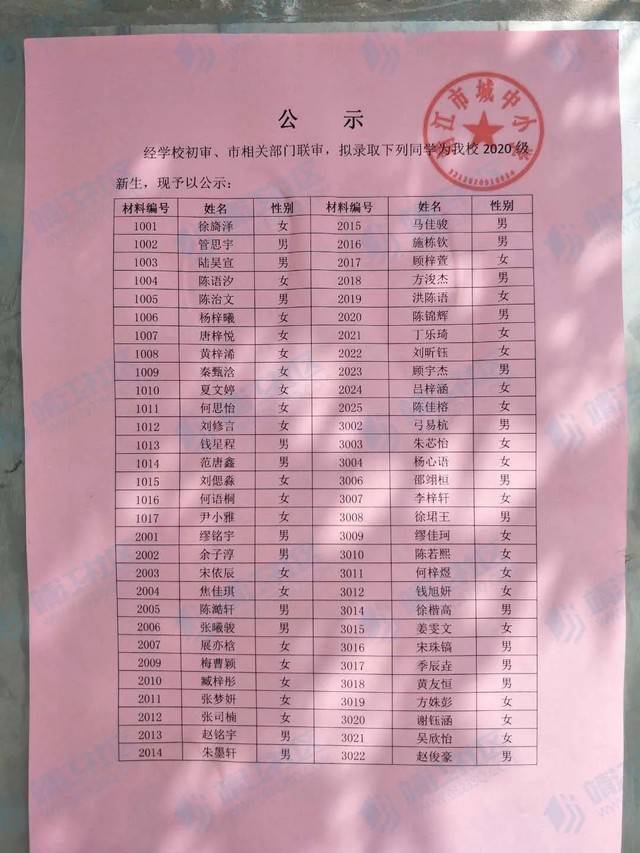 公 示
江市城中小
经学校初审、市相关部门联审，拟录取下列同学为我校 2020 级
新生，现予以公示：
材料编号 姓名 性别 材料编号 姓名 性别
1001 徐旖泽 女 2015 马佳骏 男
1002 管思宇 男 2016 施栋钦 男
1003 陆昊宣 男 2017 顾梓萱 女
1004 陈语汐 女 2018 方浚杰 男
1005 陈治文 男 2019 洪陈语 女
1006 杨梓曦 女 2020 陈锦辉 男
1007 唐梓悦 女 2021 丁乐琦 女
1008 黄梓浠 女 2022 刘昕钰 女
1009 秦甄浛 女 2023 顾宇杰 男
1010 夏文婷 女 2024 吕梓涵 女
1011 何思怡 女 2025 陈佳榕 女
1012 刘修言 女 3002 弓易杭 男
1013 钱星程 男 3003 朱芯怡 女
1014 范唐鑫 男 3004 杨心语 女
1015 刘偲淼 女 3006 邵翊桓 男
1016 何语桐 女 3007 李梓轩 女
1017 尹小雅 女 3008 徐珺王 男
2001 缪铭宇 男 3009 缪佳珂 女
2002 余子淳 男 3010 陈若熙 女
2003 宋依辰 女 3011 何梓煜 女
2004 焦佳琪 女 3012 钱旭妍 女
2005 陈澔轩 男 3014 徐楷高 男
2006 张曦骏 男 3015 姜雯文 女
2007 展亦晗 女 3016 宋珠镐 男
2009 梅曹颖 女 3017 季辰垚 男
2010 臧梓彤 女 3018 黄友恒 男
2011 张梦妍 女 3019 方姝彭 女
2012 张司楠 女 3020 谢钰涵 女
2013 赵铭宇 男 3021 吴欣怡 女
2014 朱墨轩 男 3022 赵俊豪 男
靖江社区